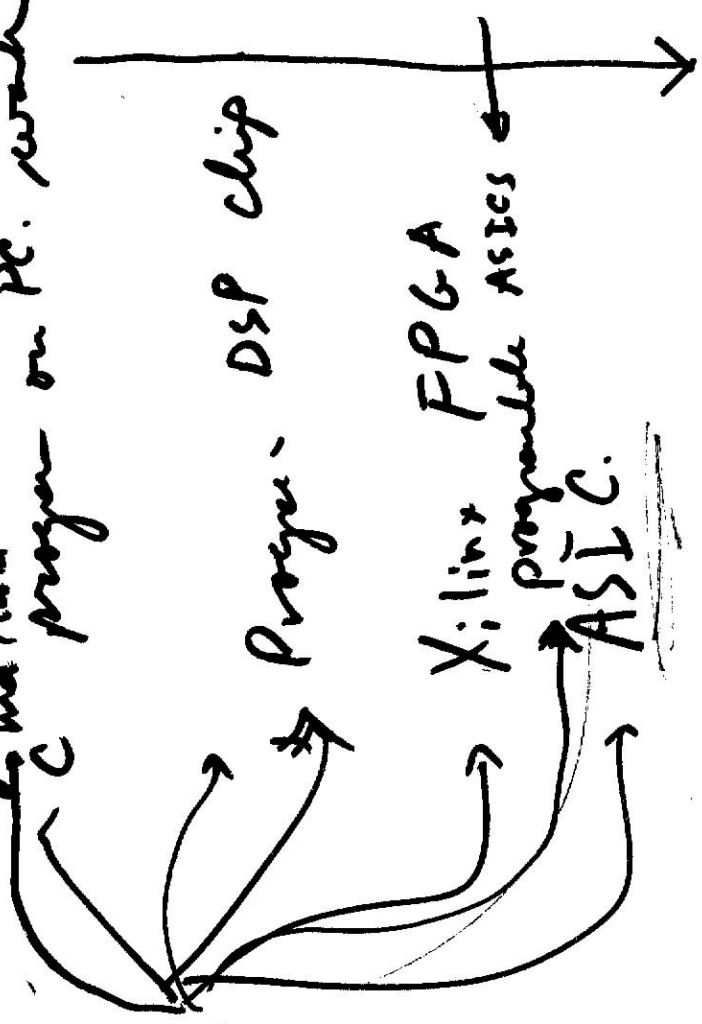 C program on PC.
Progr. DSP chip
Xilinx FPGA
programmable ASICs
ASIC.